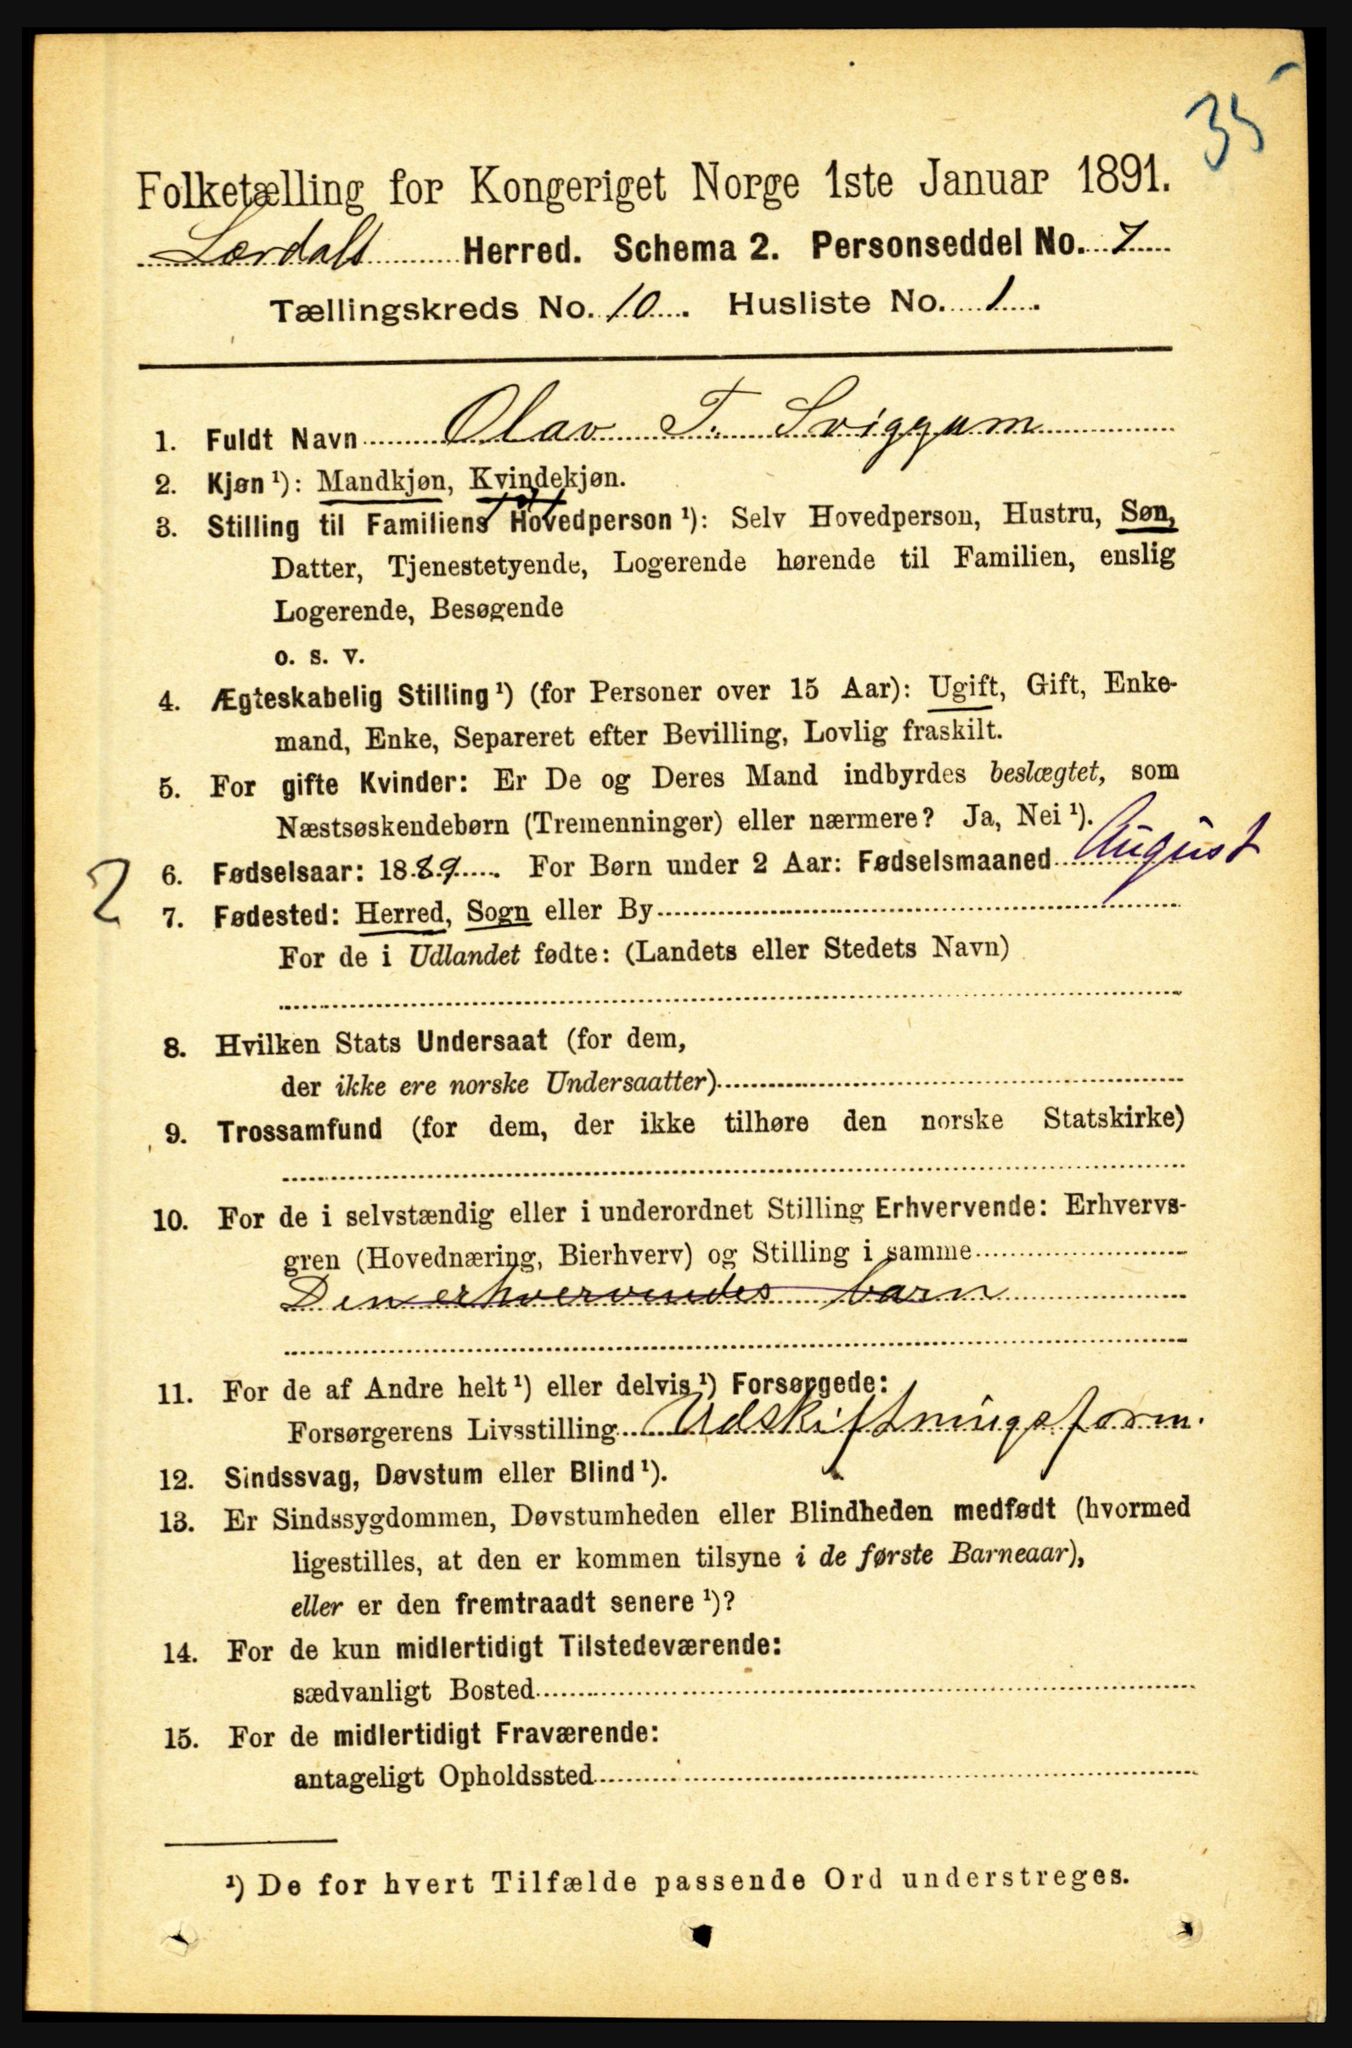 35
Folketælling for Kongeriget Norge 1ste Januar 1891.
Lærdals Herred. Schema 2. Personseddel No. 7
Tællingskreds No. 10. Husliste No. 1.
1. Fuldt Navn Olav T. Sviggum
2. Kjøn ¹): Mandkjøn, Kvindekjøn.
3. Stilling til Familiens Hovedperson ¹): Selv Hovedperson, Hustru, Søn,
Datter, Tjenestetyende, Logerende hørende til Familien, enslig
Logerende, Besøgende
o. s. v.
4. Ægteskabelig Stilling ¹) (for Personer over 15 Aar): Ugift, Gift, Enke-
mand, Enke, Separeret efter Bevilling, Lovlig fraskilt.
5. For gifte Kvinder: Er De og Deres Mand indbyrdes beslægtet, som
Næstsøskendebørn (Tremenninger) eller nærmere? Ja, Nei ¹).
2 6. Fødselsaar: 1889. For Børn under 2 Aar: Fødselsmaaned August
7. Fødested: Herred, Sogn eller By
For de i Udlandet fødte: (Landets eller Stedets Navn)
8. Hvilken Stats Undersaat (for dem,
der ikke ere norske Undersaatter)
9. Trossamfund (for dem, der ikke tilhøre den norske Statskirke)
10. For de i selvstændig eller i underordnet Stilling Erhvervende: Erhvervs-
gren (Hovednæring, Bierhverv) og Stilling i samme
Den erhvervendes barn
11. For de af Andre helt ¹) eller delvis ¹) Forsørgede:
Forsørgerens Livsstilling Udskiftningsform.
12. Sindssvag, Døvstum eller Blind ¹).
13. Er Sindssygdommen, Døvstumheden eller Blindheden medfødt (hvormed
ligestilles, at den er kommen tilsyne i de første Barneaar),
eller er den fremtraadt senere ¹)?
14. For de kun midlertidigt Tilstedeværende:
sædvanligt Bosted
15. For de midlertidigt Fraværende:
antageligt Opholdssted
¹) De for hvert Tilfælde passende Ord understreges.